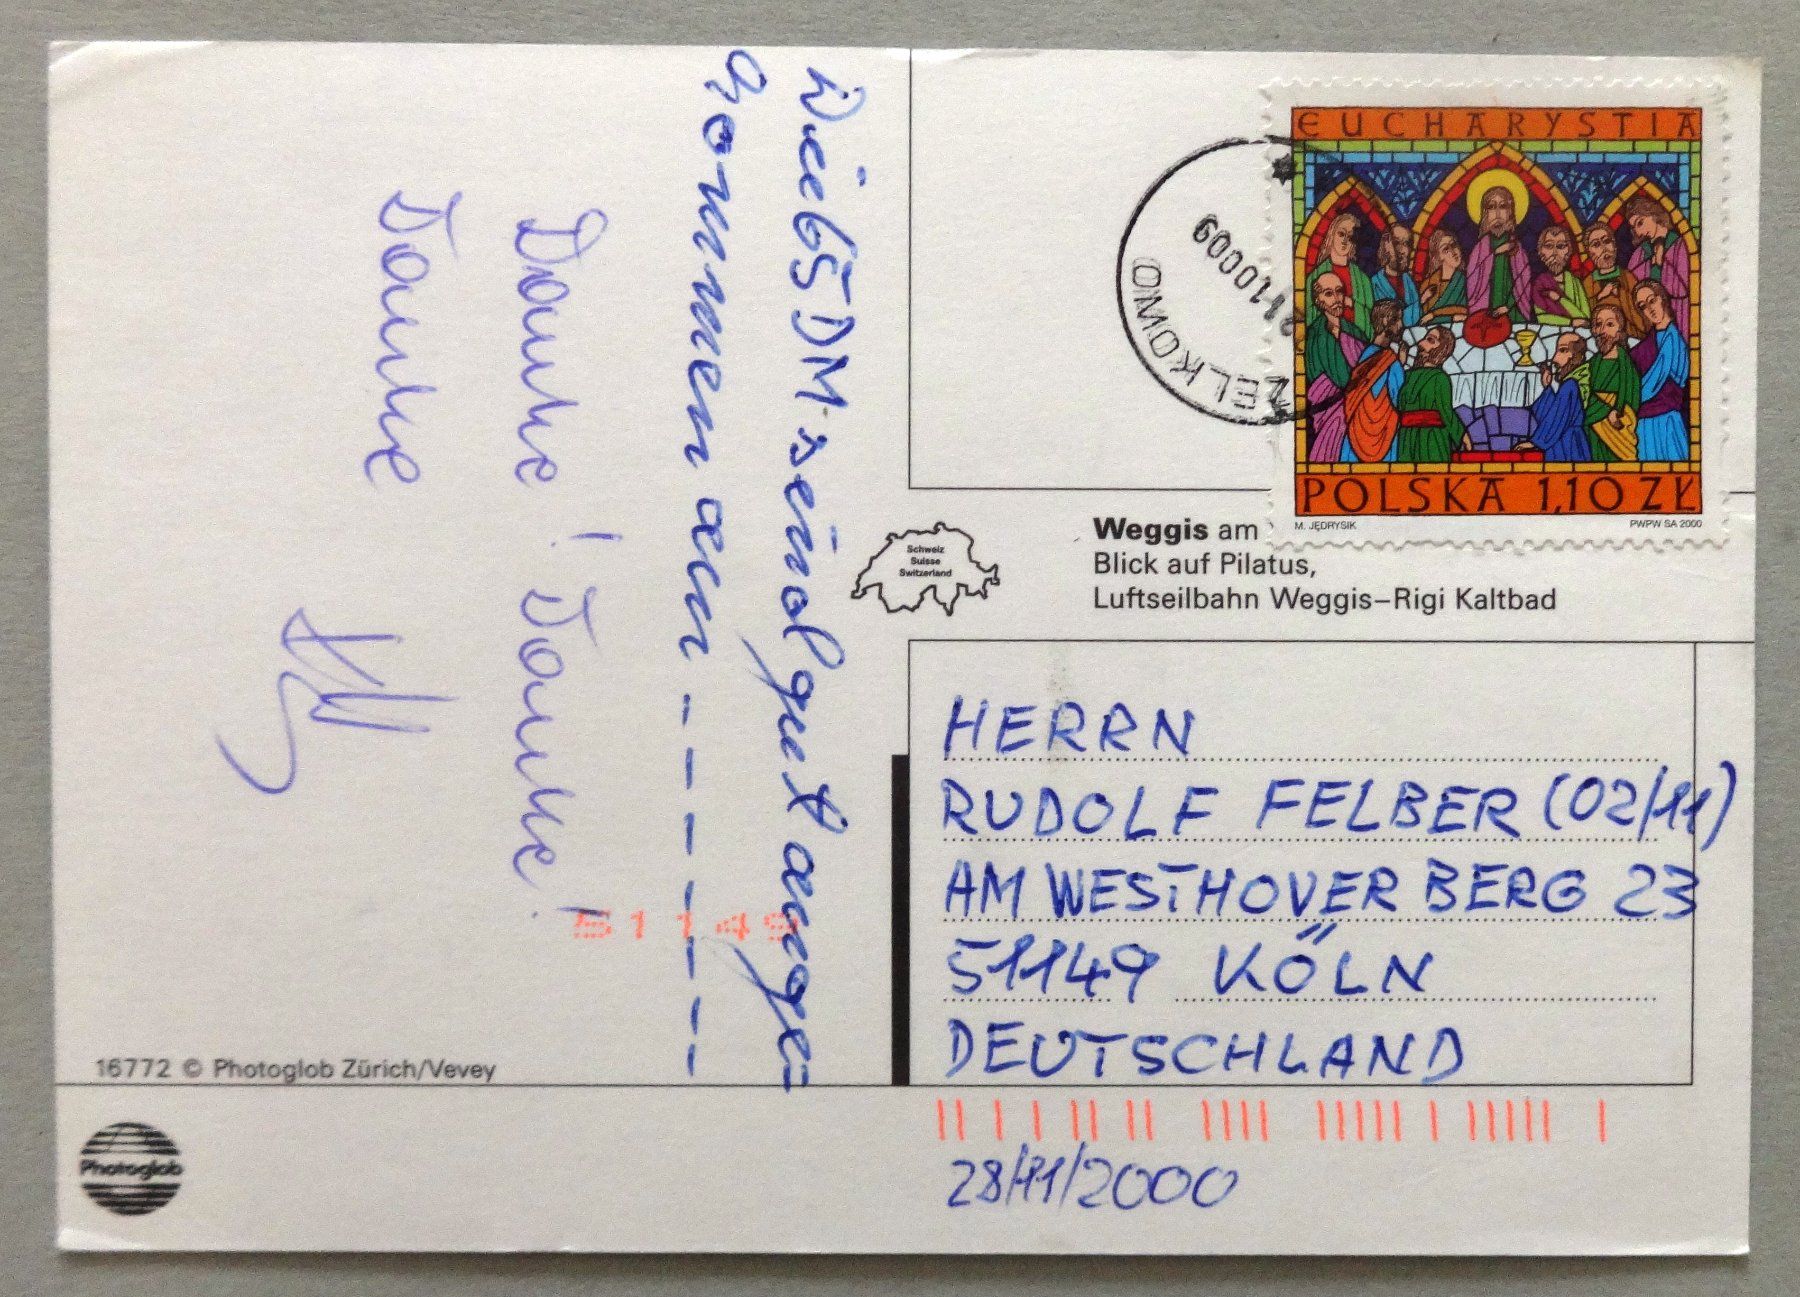 EUCHARYSTIA
POLSKA 1,10 ZŁ
M. JĘDRYSIK PWPW SA 2000
Die 65 DM sind gut ange=
kommen
Danke! Danke!
Danke
Schweiz
Suisse
Switzerland
Weggis am
Blick auf Pilatus,
Luftseilbahn Weggis–Rigi Kaltbad
HERRN
RUDOLF FELBER (02/11)
AM WESTHOVER BERG 23
51149 KÖLN
DEUTSCHLAND
28/11/2000
51149
16772 © Photoglob Zürich/Vevey
Photoglob